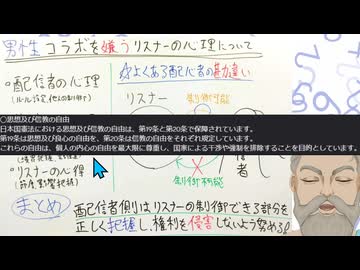 男性コラボを嫌うリスナーの心理について
・配信者の心理
☆よくある配信者の勘違い
リスナー
制御可能
○思想及び信教の自由
日本国憲法における思想及び信教の自由は、第19条と第20条で保障されています。
第19条は思想及び良心の自由を、第20条は信教の自由をそれぞれ規定しています。
これらの自由は、個人の内心の自由を最大限に尊重し、国家による干渉や強制を排除することを目的としています。
・リスナーの心得
制御不能
まとめ
配信者側はリスナーの制御できる部分を
正しく把握し、権利を侵害しないよう努める!